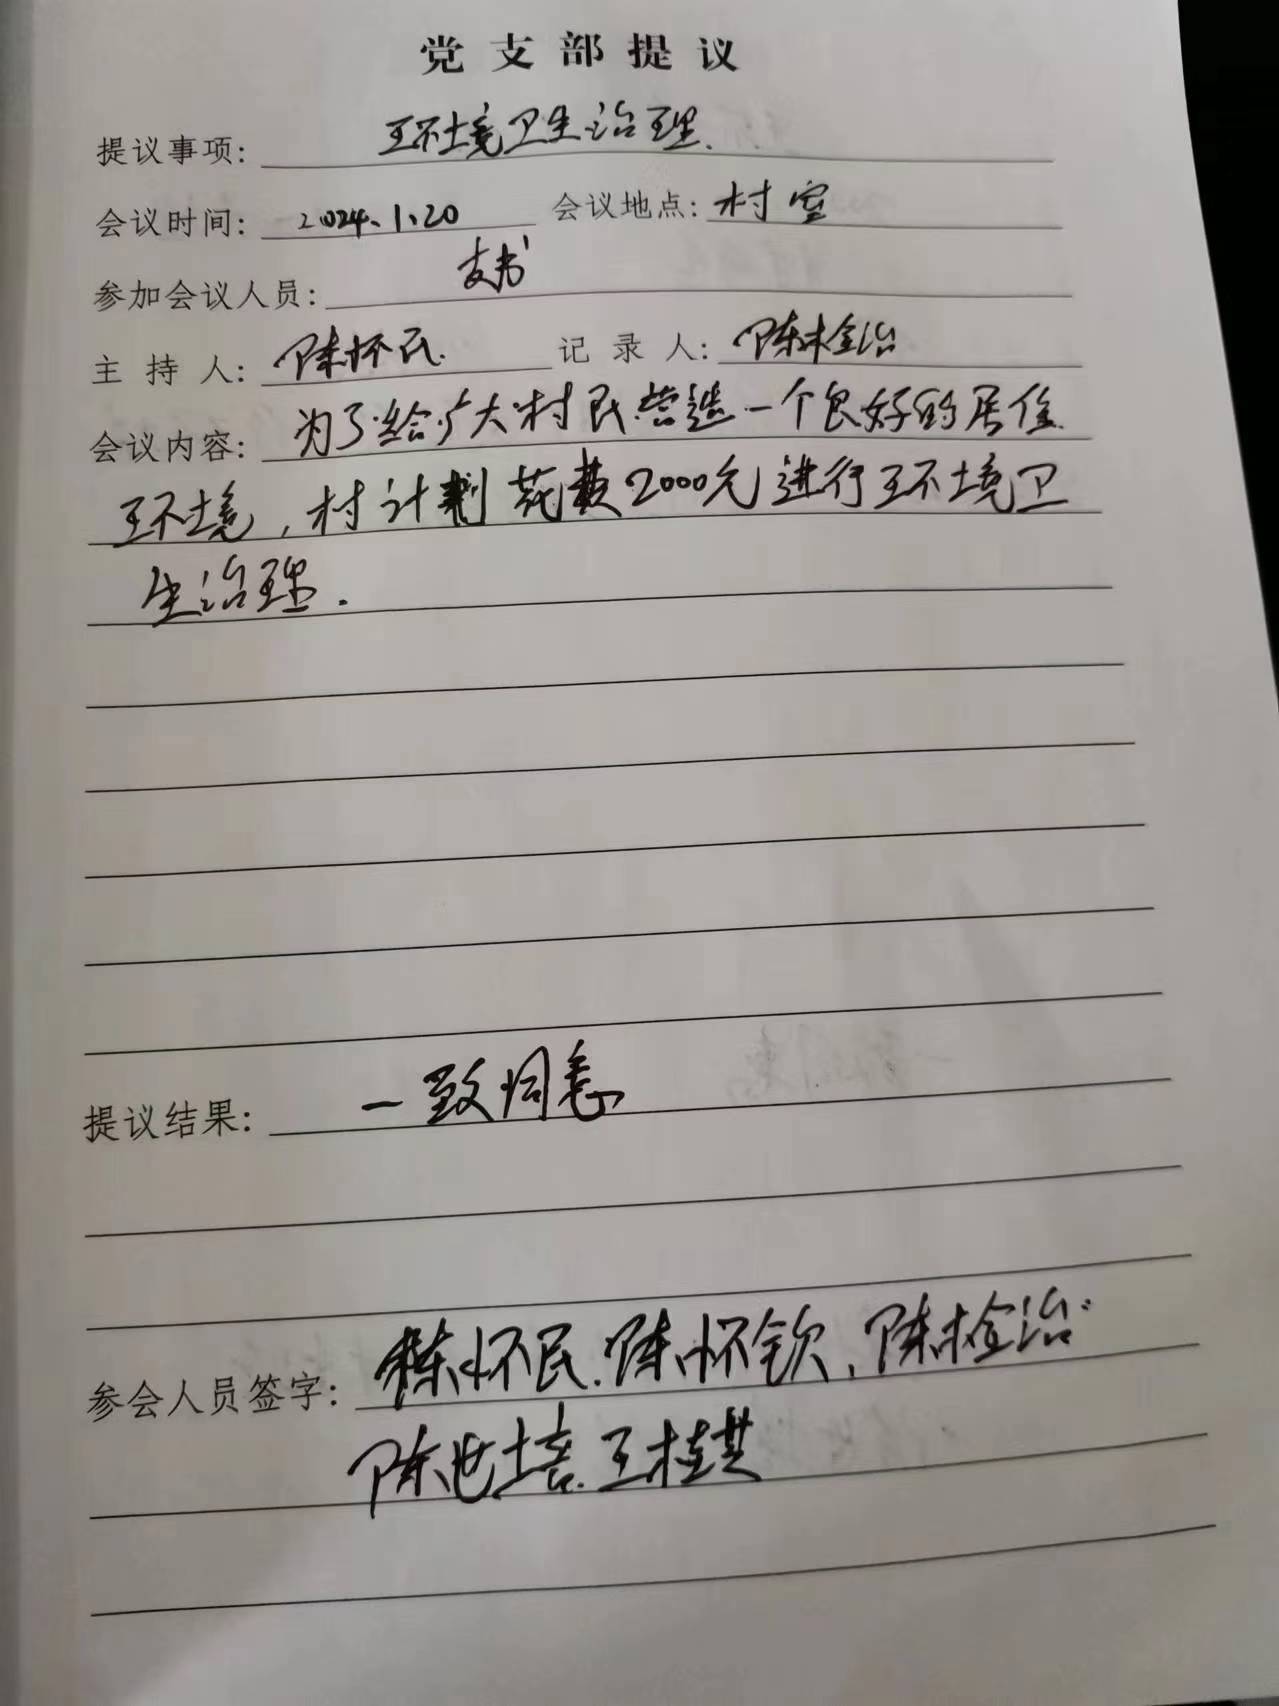 党支部提议
提议事项: 环境卫生治理.
会议时间: 2024、1、20 会议地点: 村室
参加会议人员: 支书
主持人: 陈怀民. 记录人: 陈栓治
会议内容: 为了给广大村民营造一个良好的居住
环境,村计划花费2000元进行环境卫
生治理.
提议结果: 一致同意
参会人员签字: 陈怀民.陈怀钦,陈栓治
陈世培.王桂